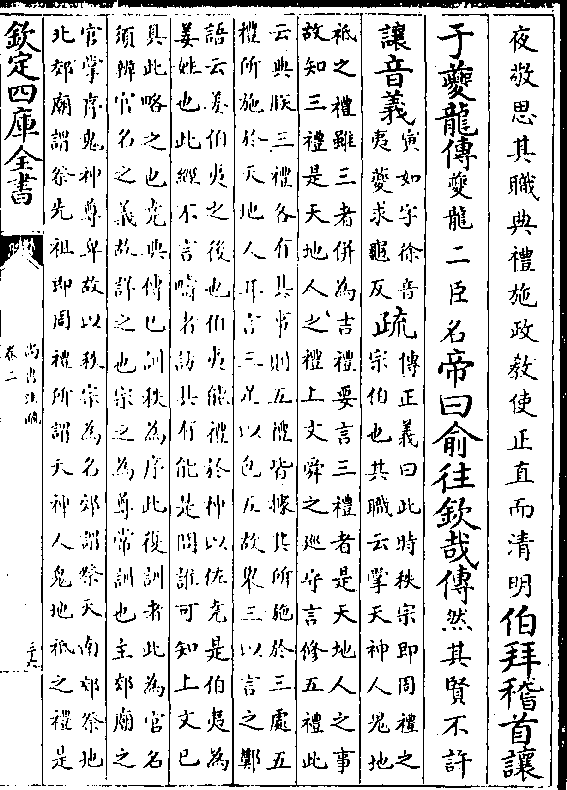 夜敬思其職典禮施政敎使正直而清明伯拜稽首讓
于夔龍傳夔龍二臣名帝曰俞往欽哉傳然其賢不許
讓音義寅如字徐音
夷夔求龜反疏傳正義曰此時秩宗即周禮之
宗伯也其職云掌天神人鬼地
祇之禮雖三者併為吉禮要言三禮者是天地人之事
故知三禮是天地人之禮上文舜之巡守言修五禮此
云典朕三禮各有其事則五禮皆據其所施於三處五
禮所施於天地人耳言三足以包五故舉三以言之鄭
語云姜伯夷之後也伯夷能禮於神以佐堯是伯夷為
姜姓也此經不言疇者訪其有能是問誰可知上文已
具此略之也堯典傳已訓秩為序此復訓者此為官名
須辨官名之義故詳之也宗之為尊常訓也主郊廟之
官掌序鬼神尊卑故以秩宗為名郊謂祭天南郊祭地
北郊廟謂祭先祖即周禮所謂天神人鬼地祇之禮是
欽定四庫全書
尚書注疏
卷二